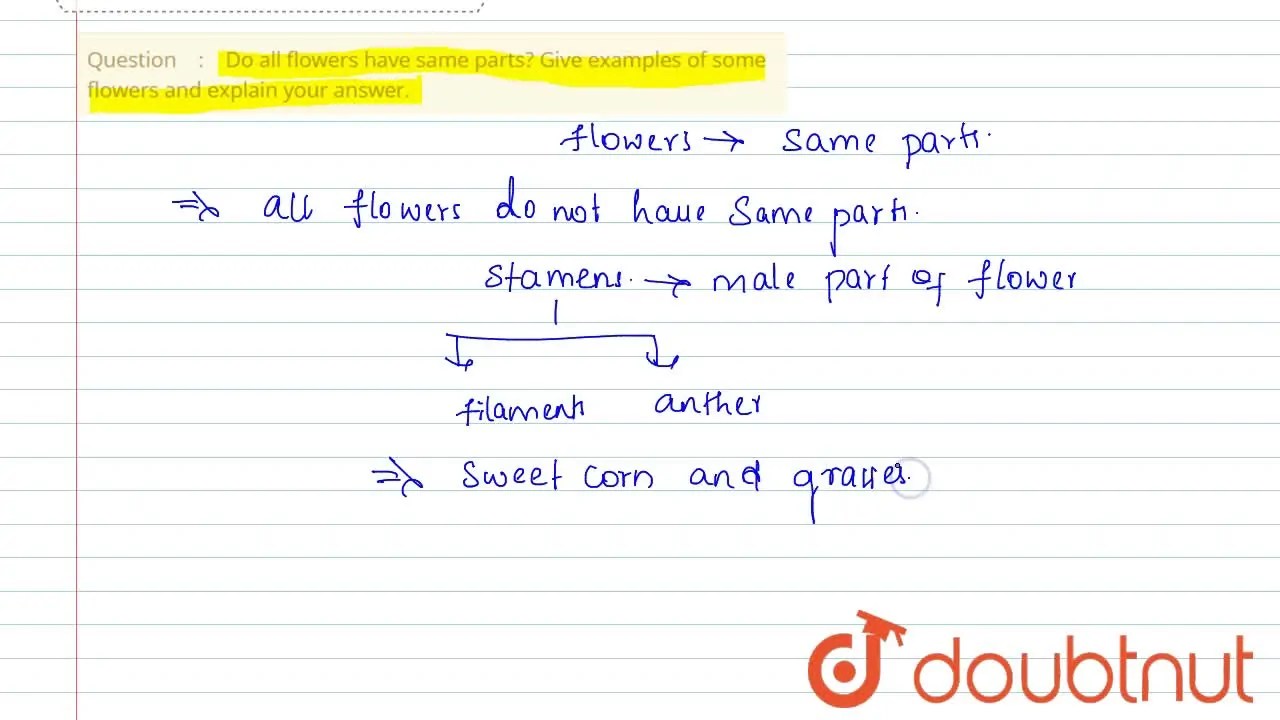 Question : Do all flowers have same parts? Give examples of some
flowers and explain your answer.
flowers → same parts.
⇒ all flowers do not have same parts.
stamens. → male part of flower
filaments anther
⇒ sweet corn and grasses.
doubtnut